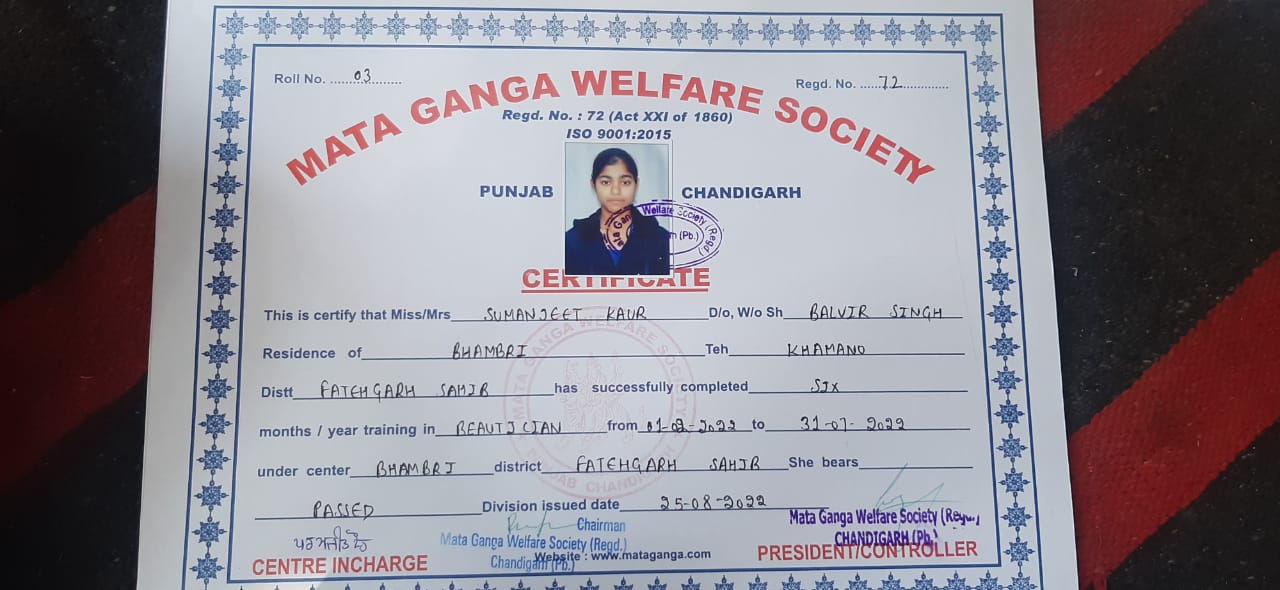 Roll No. ......03......... Regd. No. ......72..............
MATA GANGA WELFARE SOCIETY
Regd. No. : 72 (Act XXI of 1860)
ISO 9001:2015
PUNJAB CHANDIGARH
Welfare Society (Regd.)
(Pb.)
CERTIFICATE
This is certify that Miss/Mrs SUMANJEET KAUR D/o, W/o Sh BALVIR SINGH
Residence of BHAMBRI Teh KHAMANO
Distt FATEHGARH SAHIB has successfully completed SIX
months / year training in BEAUTICIAN from 01-02-2022 to 31-07-2022
under center BHAMBRI district FATEHGARH SAHIB She bears
PASSED Division issued date 25-08-2022
MATA GANGA WELFARE SOCIETY
PUNJAB CHANDIGARH
Chairman
Mata Ganga Welfare Society (Regd.)
Chandigarh (Pb.)
Mata Ganga Welfare Society (Regd.)
CHANDIGARH (Pb.)
CENTRE INCHARGE Website : www.mataganga.com PRESIDENT/CONTROLLER